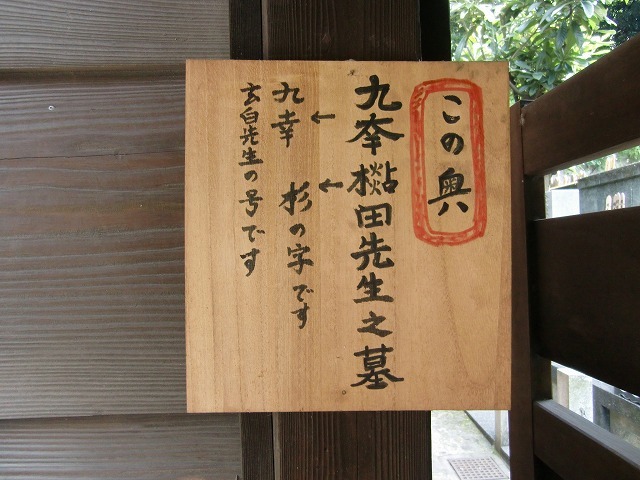 この奥
九㚔檆田先生之墓
九幸 ← 杉の字です ←
玄白先生の号です